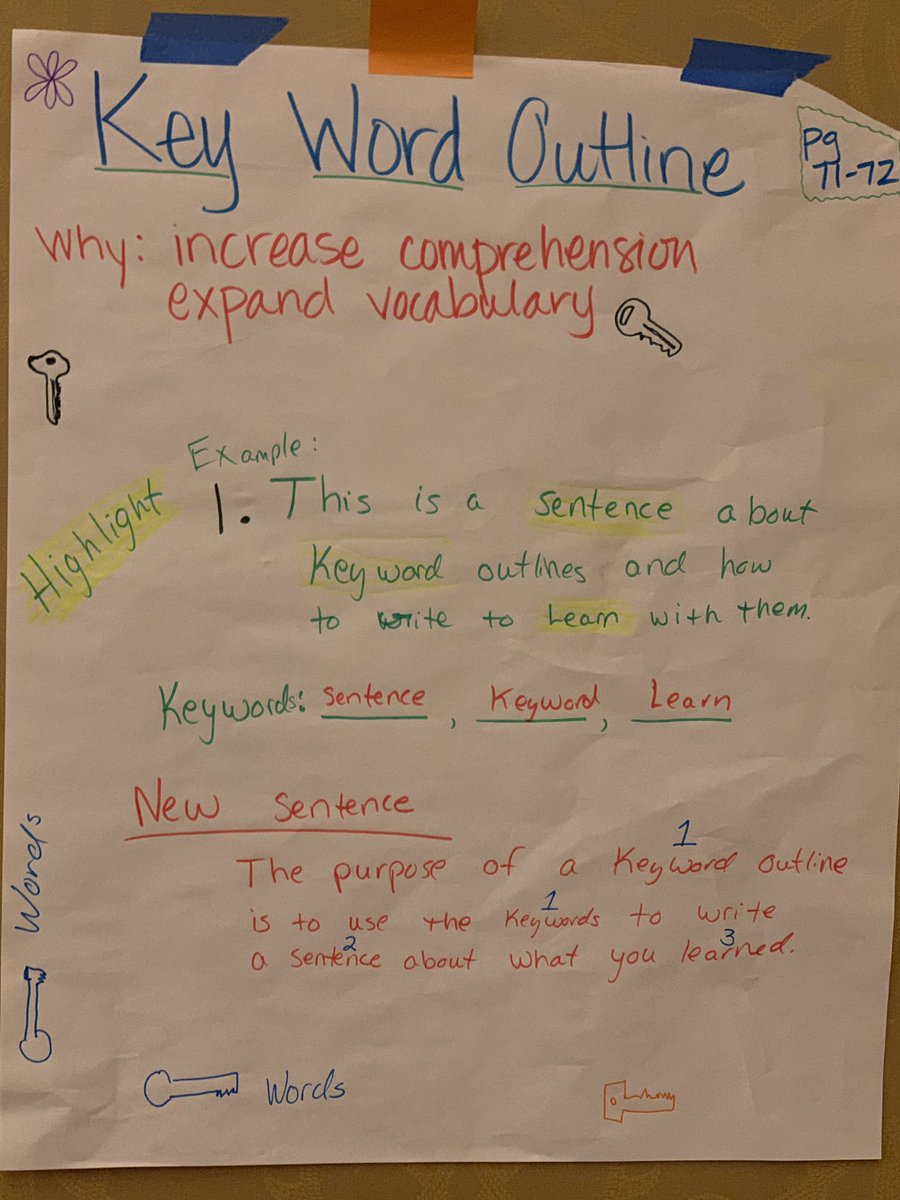 Key Word Outline
pg
71-72
Why: increase comprehension
expand vocabulary
Example:
Highlight
1. This is a sentence about
Keyword outlines and how
to write to Learn with them.
Keywords: Sentence, Keyword, Learn
New Sentence
1
The purpose of a Keyword outline
1
is to use the Keywords to write
2 3
a sentence about what you learned.
Words
Words